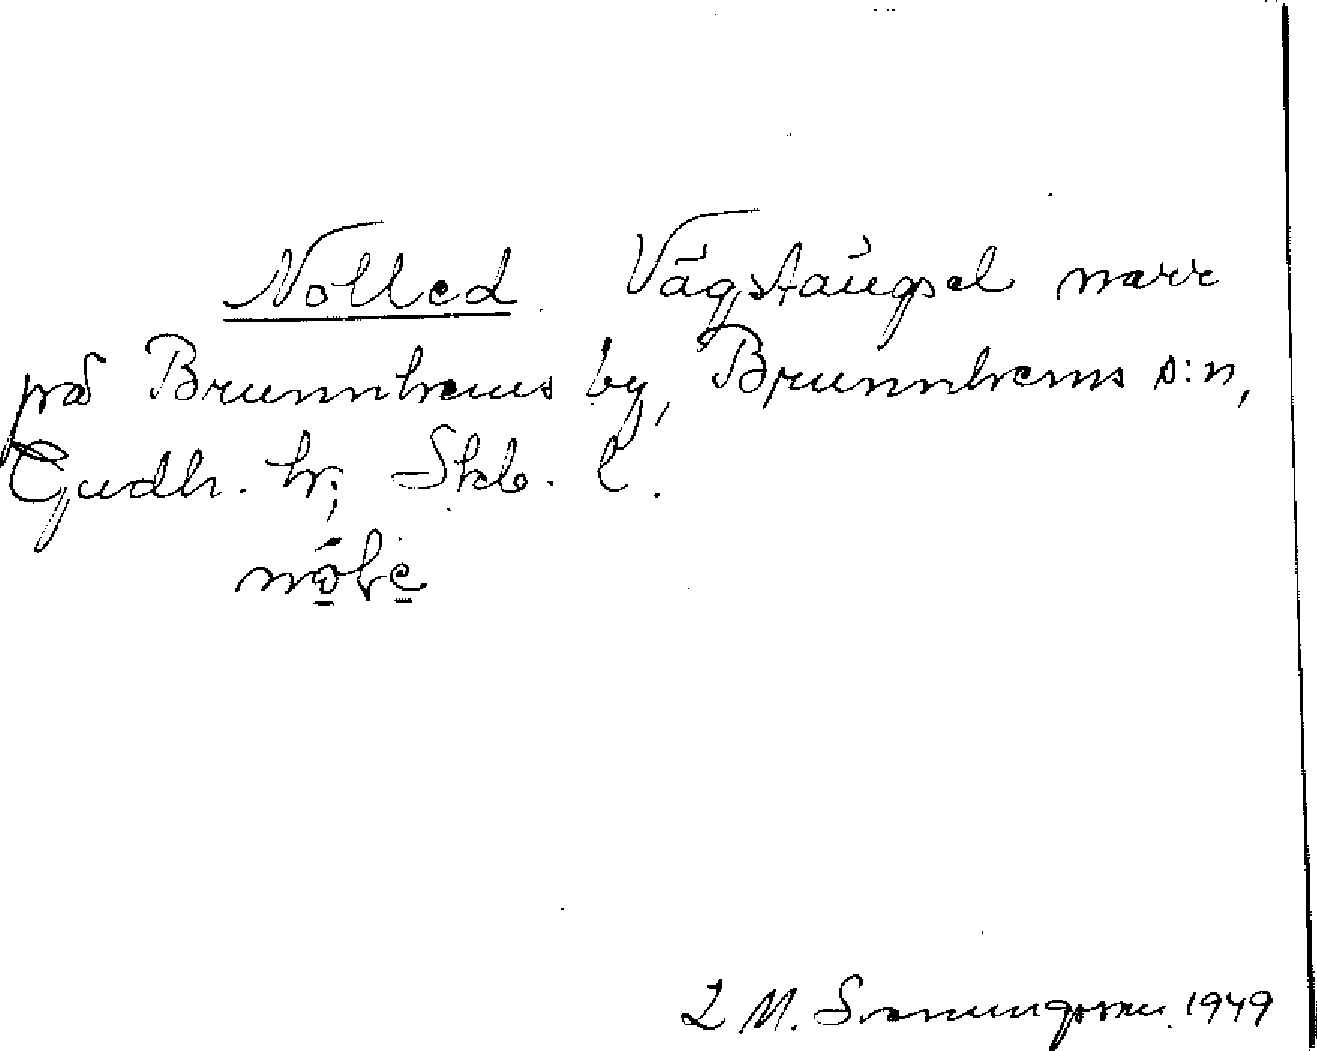 Nolled. Vägstängsel norr
på Brunnhems by, Brunnhems s:n,
Gudh. hr; Skb. l.
L M. Svenungsson. 1949